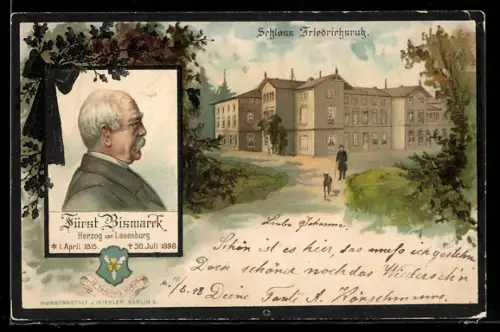 Schloss Friedrichsruh.
Fürst Bismarck
Herzog von Lauenburg
* 1. April 1815. † 30. Juli 1898.
Liebe Johanna.
Schön ist es hier, das muß ich gestehen
Doch schöner noch das Wiedersehn
/8.98 Deine Tante A.
KUNSTANSTALT J. MIESLER, BERLIN S.